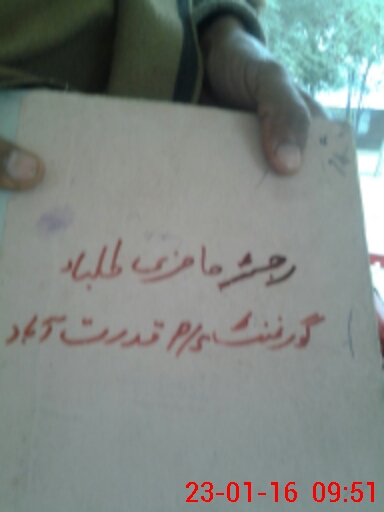 رجسٹر حاضری طلباء
گورنمنٹ قدرت آباد
23-01-16 09:51